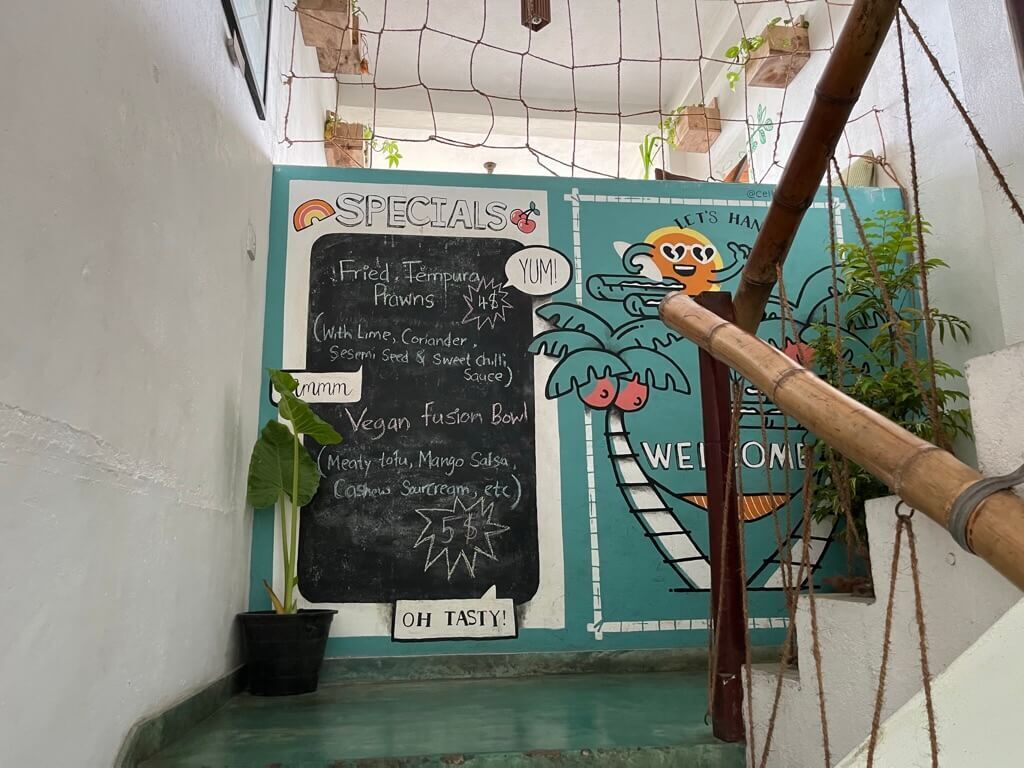 SPECIALS
Fried, Tempura
Prawns
4$
YUM!
(With Lime, Coriander,
Sesemi Seed & Sweet chilli
Sauce)
Vegan fusion Bowl
(Meaty tofu, Mango Salsa,
Cashew Sourcream, etc)
5$
OH TASTY!
LET'S
WELCOME